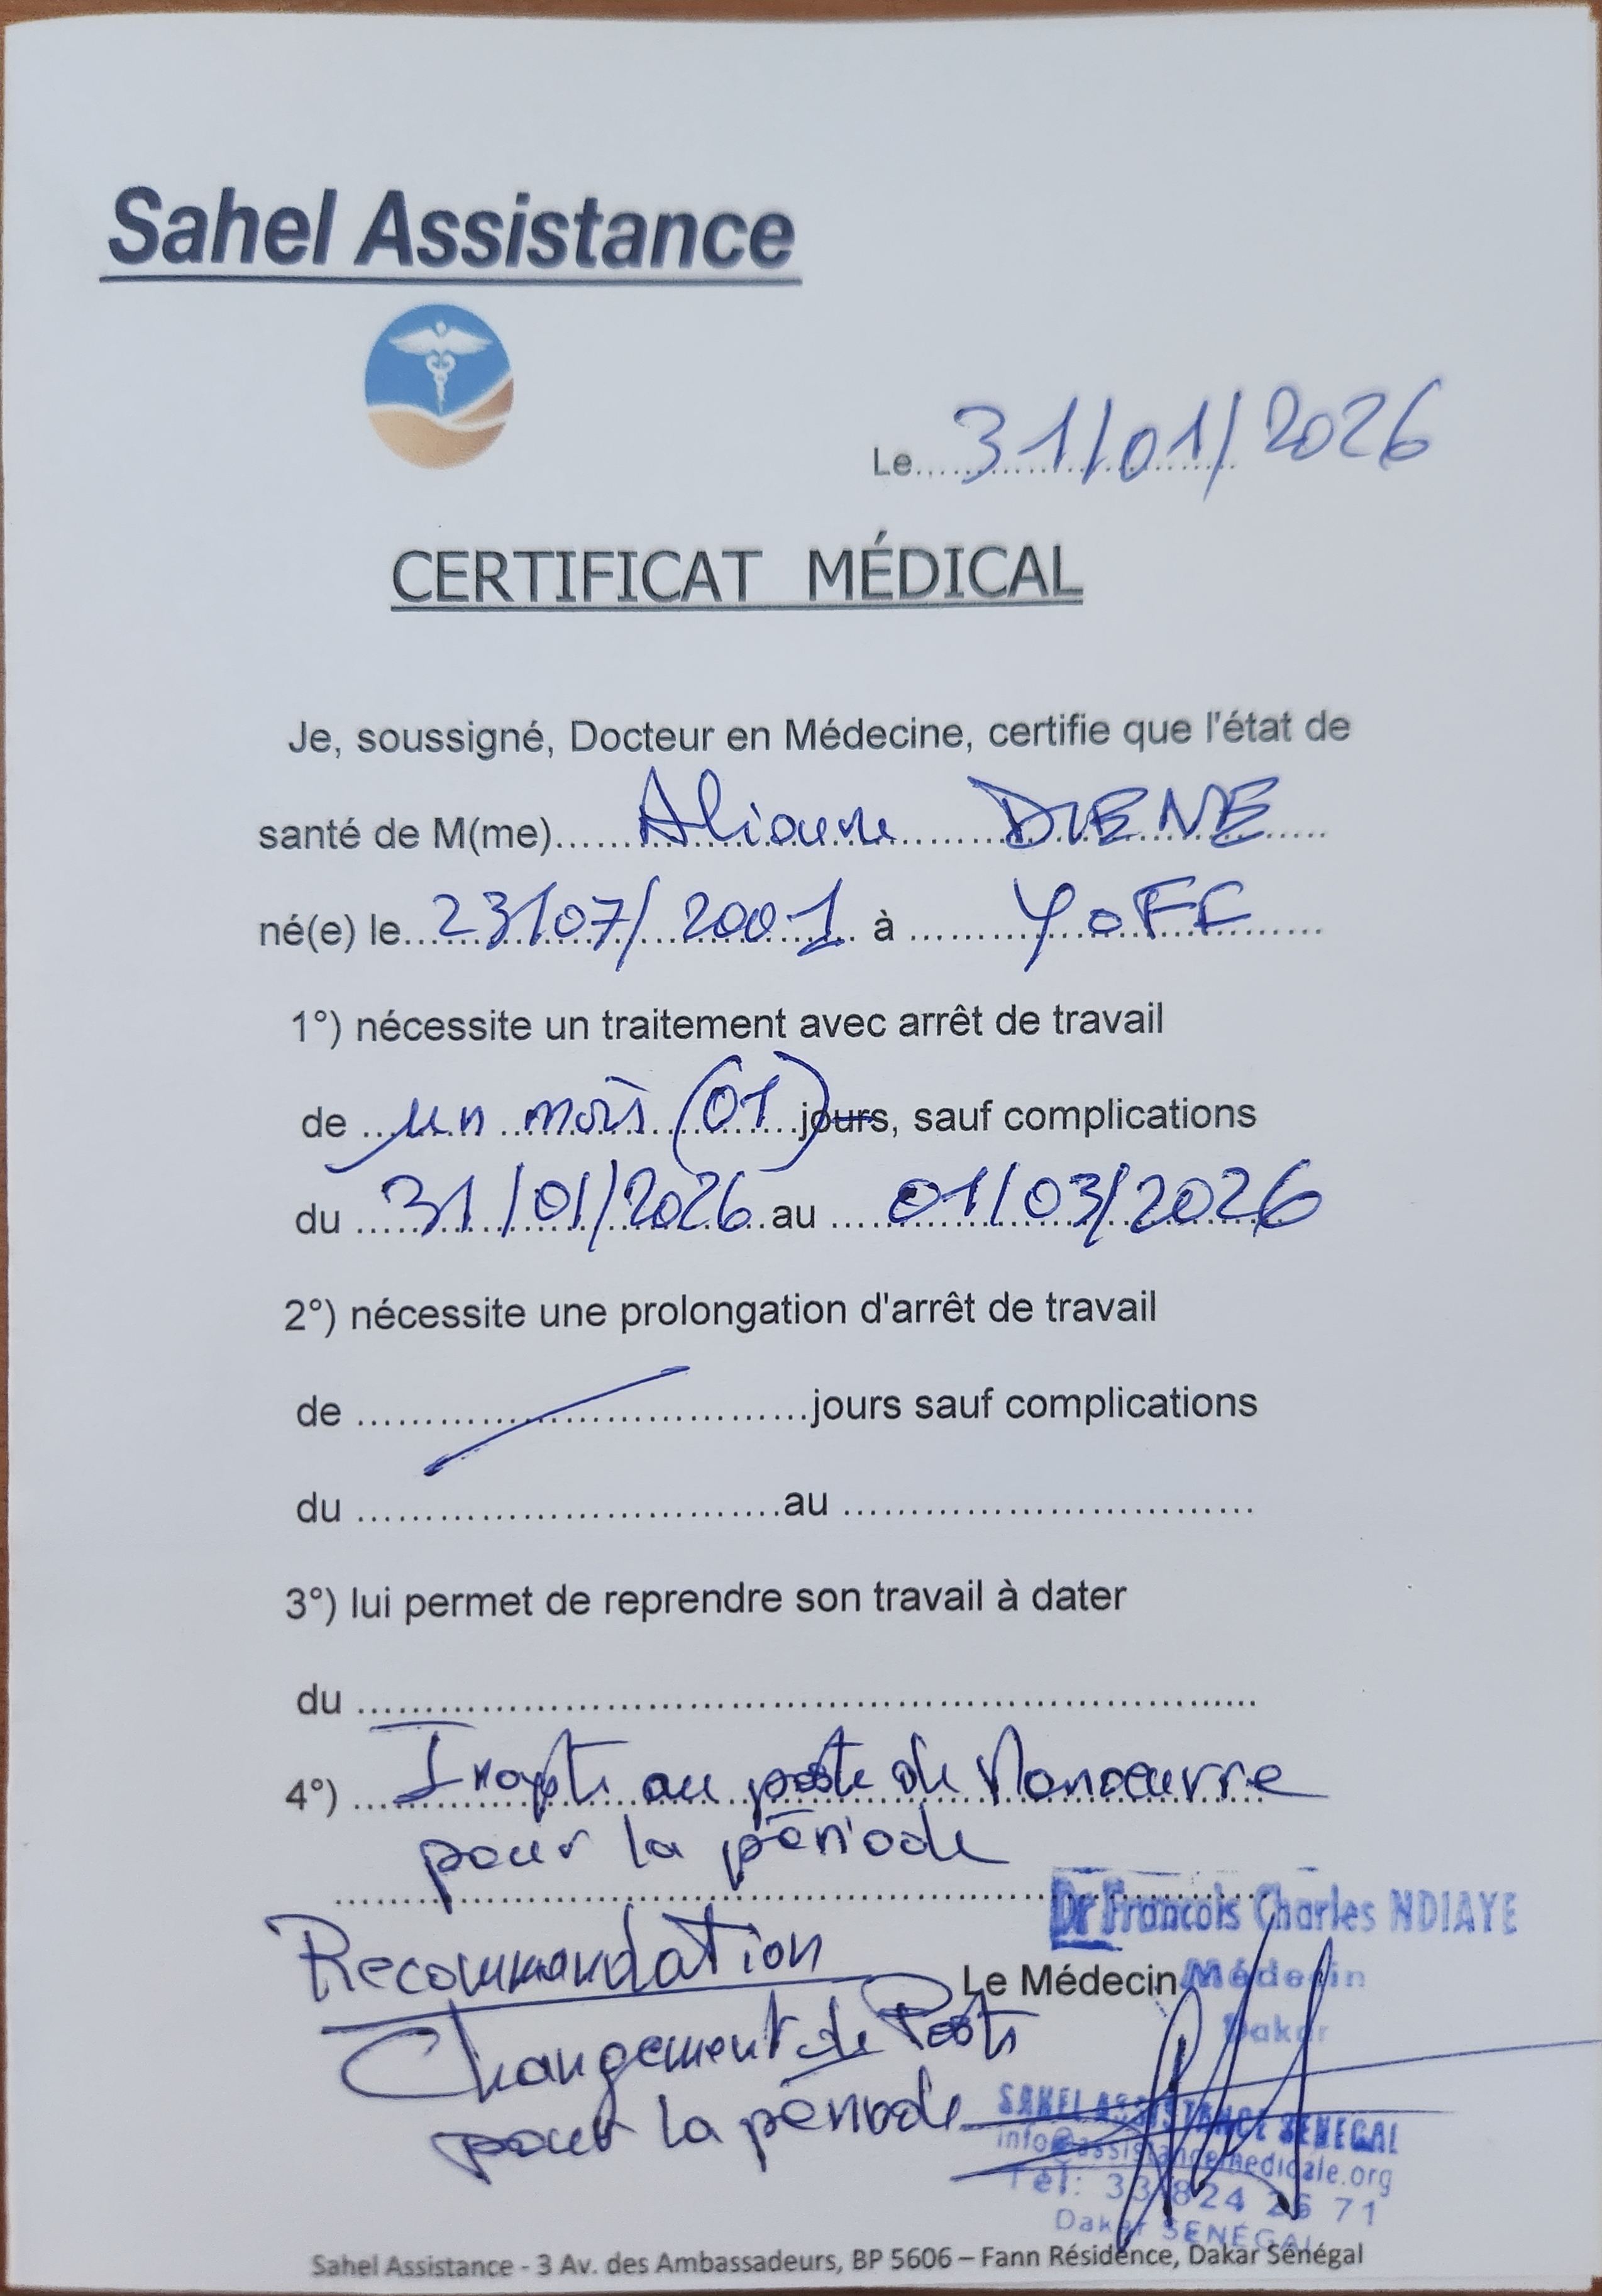 Sahel Assistance
Le.....31/01/2026
CERTIFICAT MÉDICAL
Je, soussigné, Docteur en Médecine, certifie que l'état de
santé de M(me)......Alioune DIENE......
né(e) le...23/07/2001... à ......YOFF......
1°) nécessite un traitement avec arrêt de travail
de ...un mois (01)...jours, sauf complications
du ...31/01/2026...au ...01/03/2026
2°) nécessite une prolongation d'arrêt de travail
de ........................................jours sauf complications
du ......................................au .....................................
3°) lui permet de reprendre son travail à dater
du ................................................................................
4°) ...Inapte au poste de Manœuvre
pour la période
Dr Francois Charles NDIAYE
Recommandation
Le Médecin Médecin
Dakar
Changement de Poste
pour la période
SAHEL ASSISTANCE SENEGAL
info@assistancemedicale.org
Tél: 33 824 26 71
Dakar SENÉGAL
Sahel Assistance - 3 Av. des Ambassadeurs, BP 5606 – Fann Résidence, Dakar Sénégal